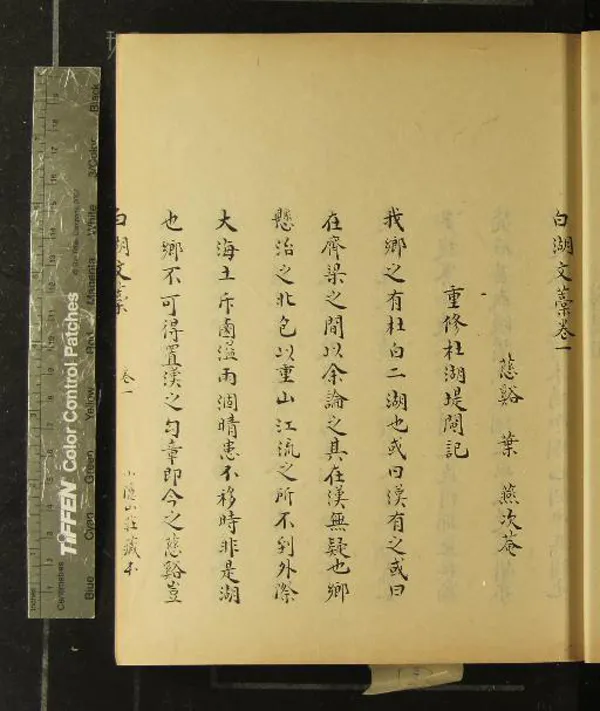 白湖文藁卷一
慈谿 葉燕次菴
重修杜湖堤閘記
我鄉之有杜白二湖也或曰漢有之或曰
在齊梁之間以余論之其在漢無疑也鄉
懸治之北包以重山江流之所不到外際
大海土斥鹵溢雨涸晴患不移時非是湖
也鄉不可得置漢之句章即今之慈谿豈
白湖文藁 卷一 小隱山莊藏本
TIFFEN Color Control Patches
Blue Cyan Green Yellow Red Magenta White 3/Color Black
Inches
Centimetres